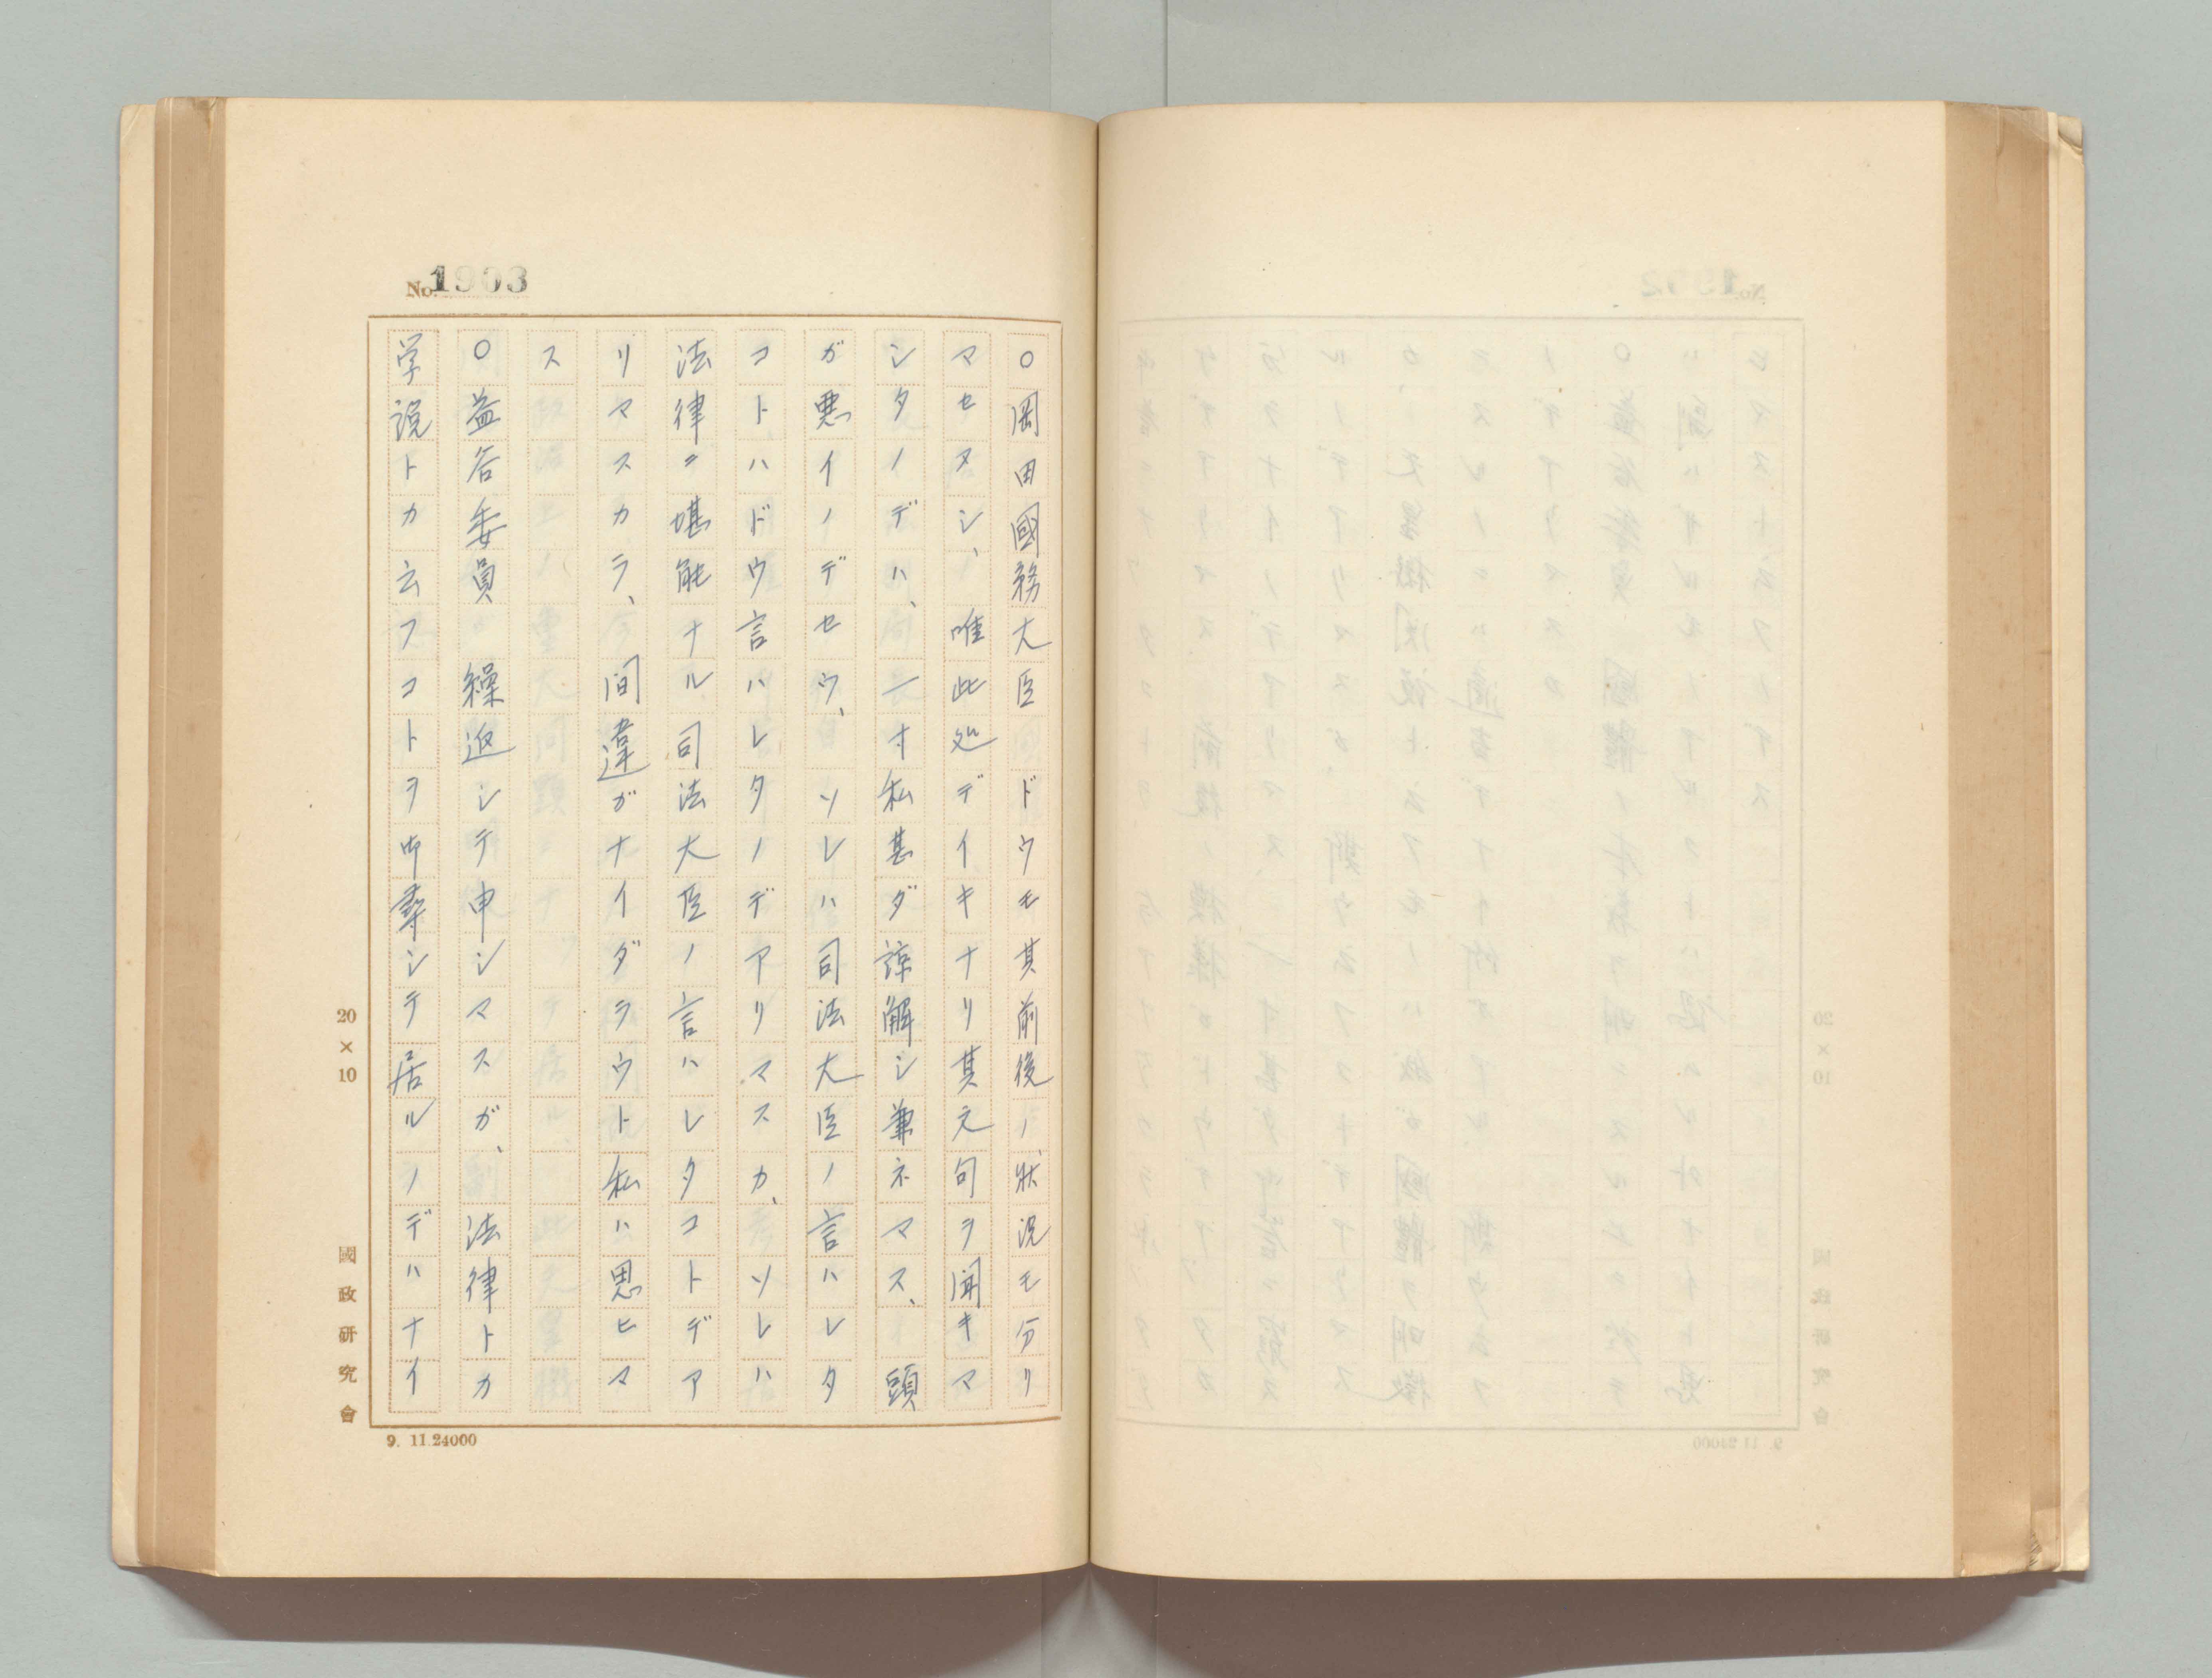 No. 1903
○岡田國務大臣　ドウモ其前後ノ狀況モ分リ
マセヌシ、唯此処デイキナリ其元句ヲ聞キマ
シタノデハ、一寸私甚ダ諒解シ兼ネマス、頭
ガ悪イノデセウ、ソレハ司法大臣ノ言ハレタ
コトハドウ言ハレタノデアリマスカ、ソレハ
法律ニ堪能ナル司法大臣ノ言ハレタコトデア
リマスカラ、間違ガナイダラウト私ハ思ヒマ
ス
○益谷委員　繰返シテ申シマスガ、法律トカ
学説トカ云フコトヲ御尋シテ居ルノデハナイ
20×10
國政研究會
9. 11.24000